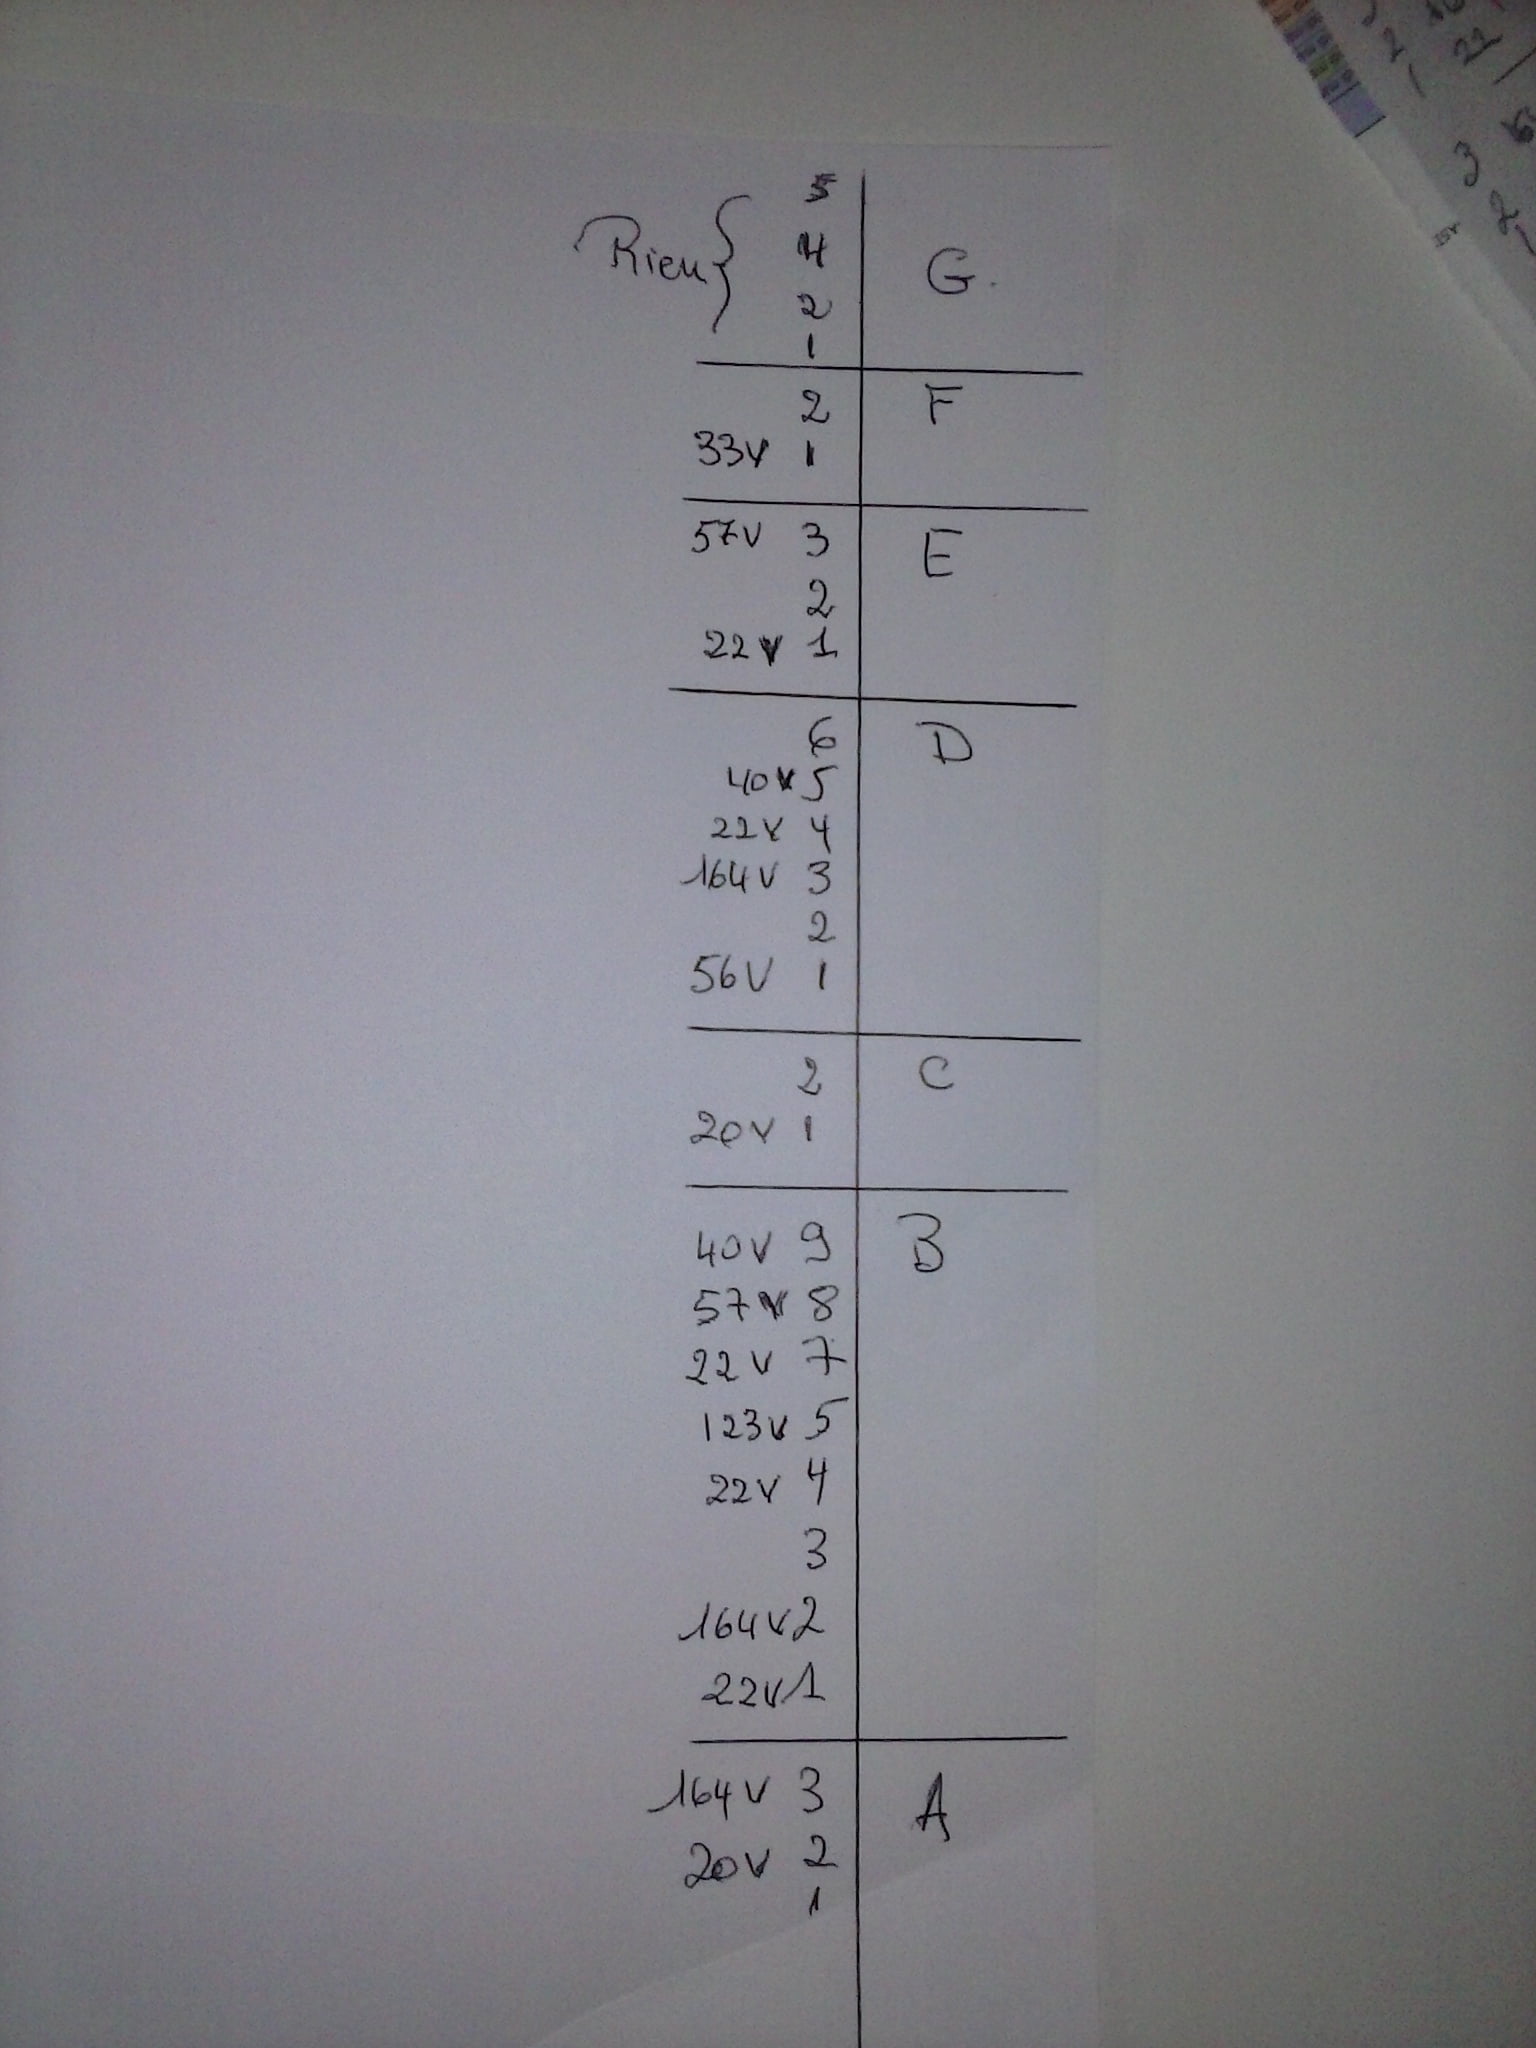 5
Rien { 4 G.
2
1
2 F
33V 1
57V 3 E
2
22V 1
6 D
40V 5
22V 4
164V 3
2
56V 1
2 C
20V 1
40V 9 B
57V 8
22V 7
123V 5
22V 4
3
164V 2
22V 1
164V 3 A
20V 2
1